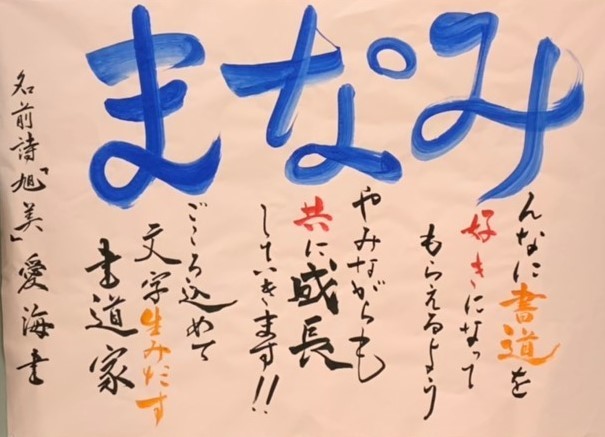 まなみ
んなに書道を
好きになって
もらえるよう
やみながらも
共に成長
していきます!!
ごころ込めて
文字生みだす
書道家
名前詩「旭美」愛海書